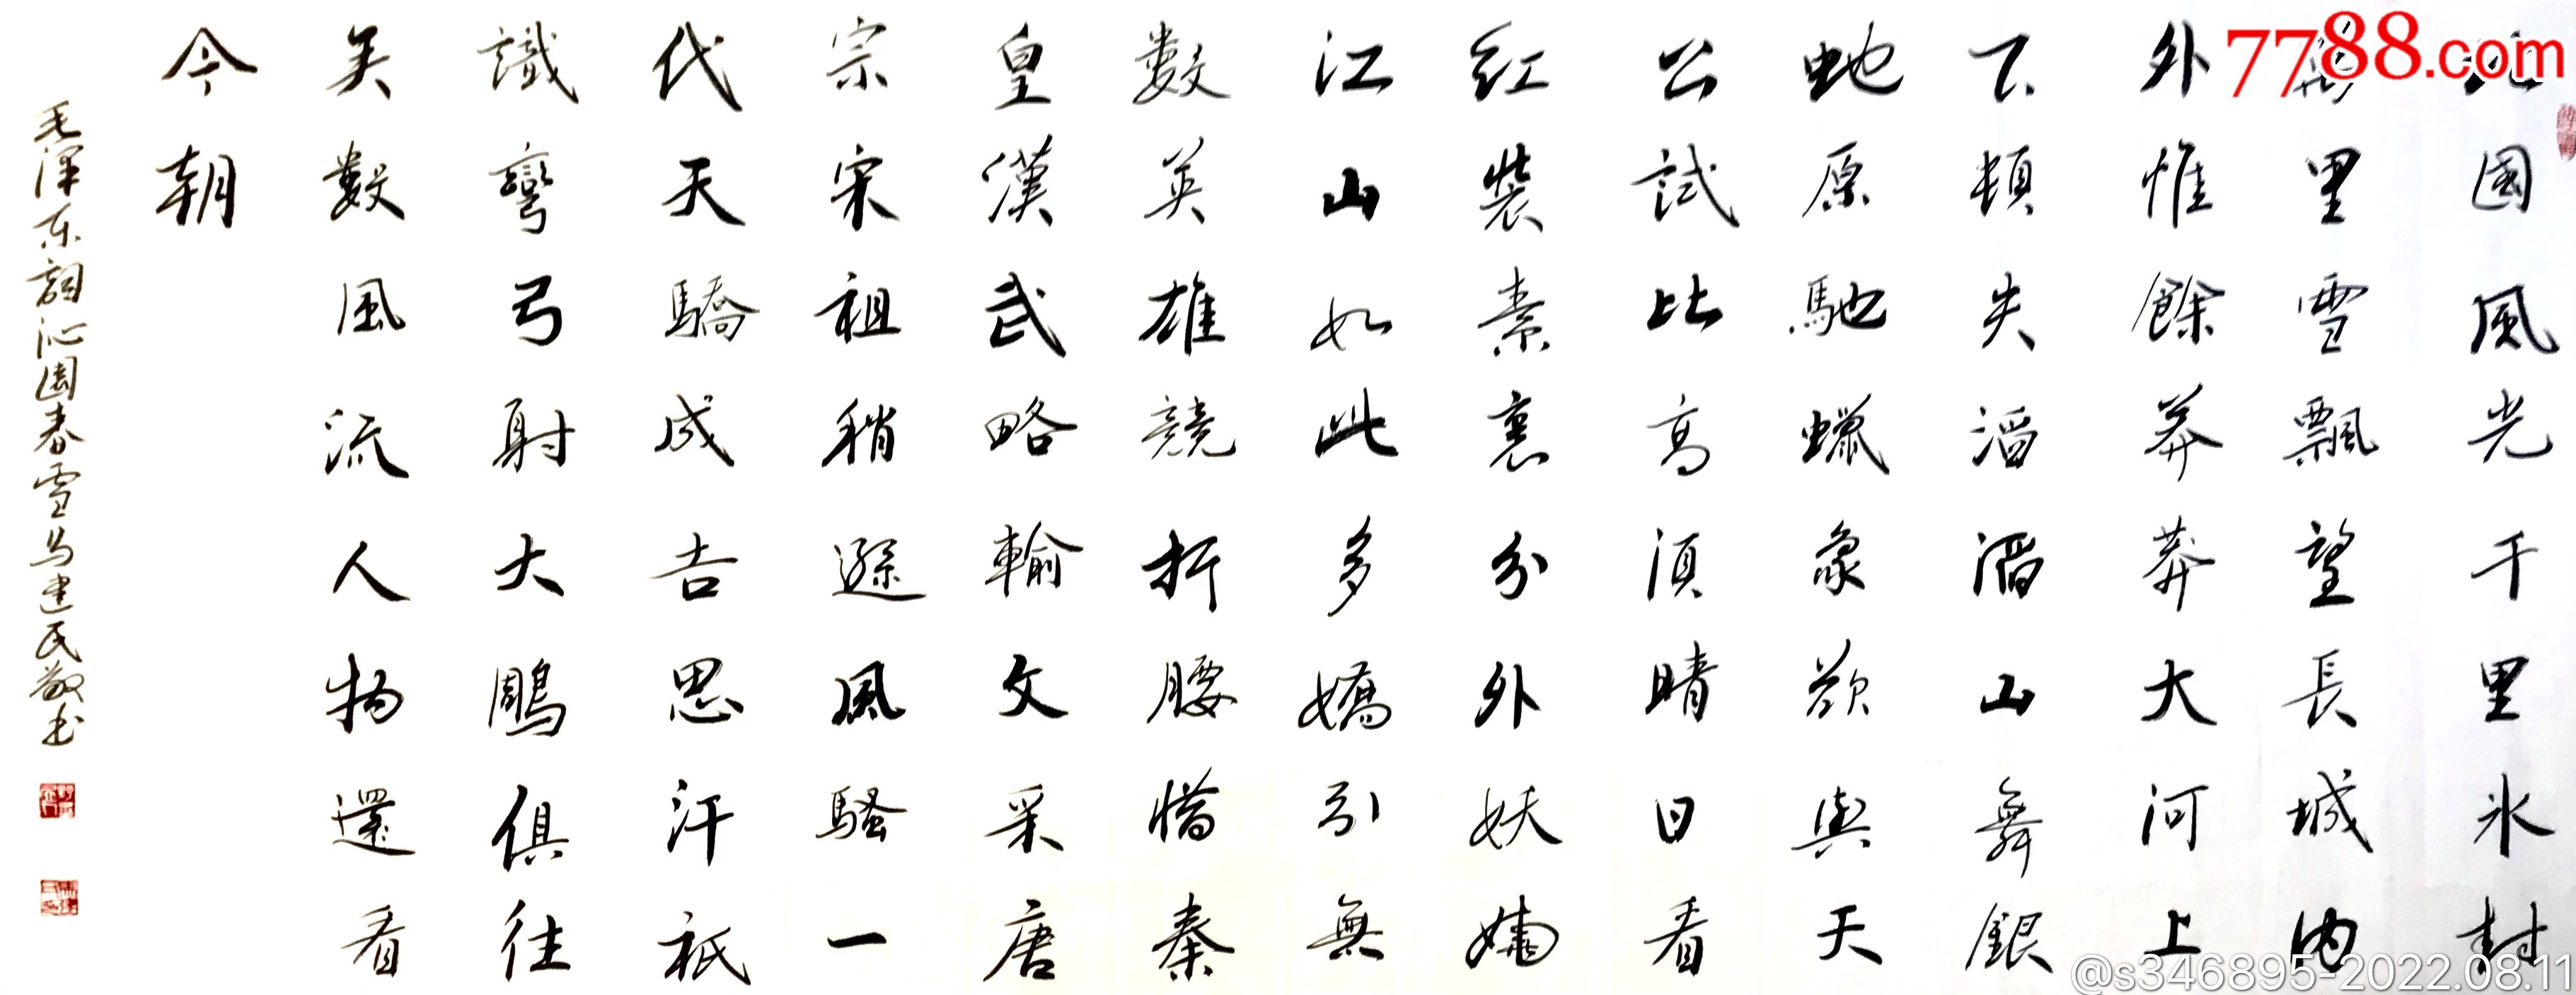 北國風光千里氷封
萬里雪飄望長城内
外惟餘莽莽大河上
下頓失滔滔山舞銀
蛇原馳蠟象欲與天
公試比高須晴日看
紅裝素裹分外妖嬈
江山如此多嬌引無
數英雄競折腰惜秦
皇漢武略輸文采唐
宗宋祖稍遜風騷一
代天驕成吉思汗祇
識彎弓射大鵰俱往
矣數風流人物還看
今朝
毛澤东詞沁園春雪马建民敬书
7788.com
@s346895-2022.08.11